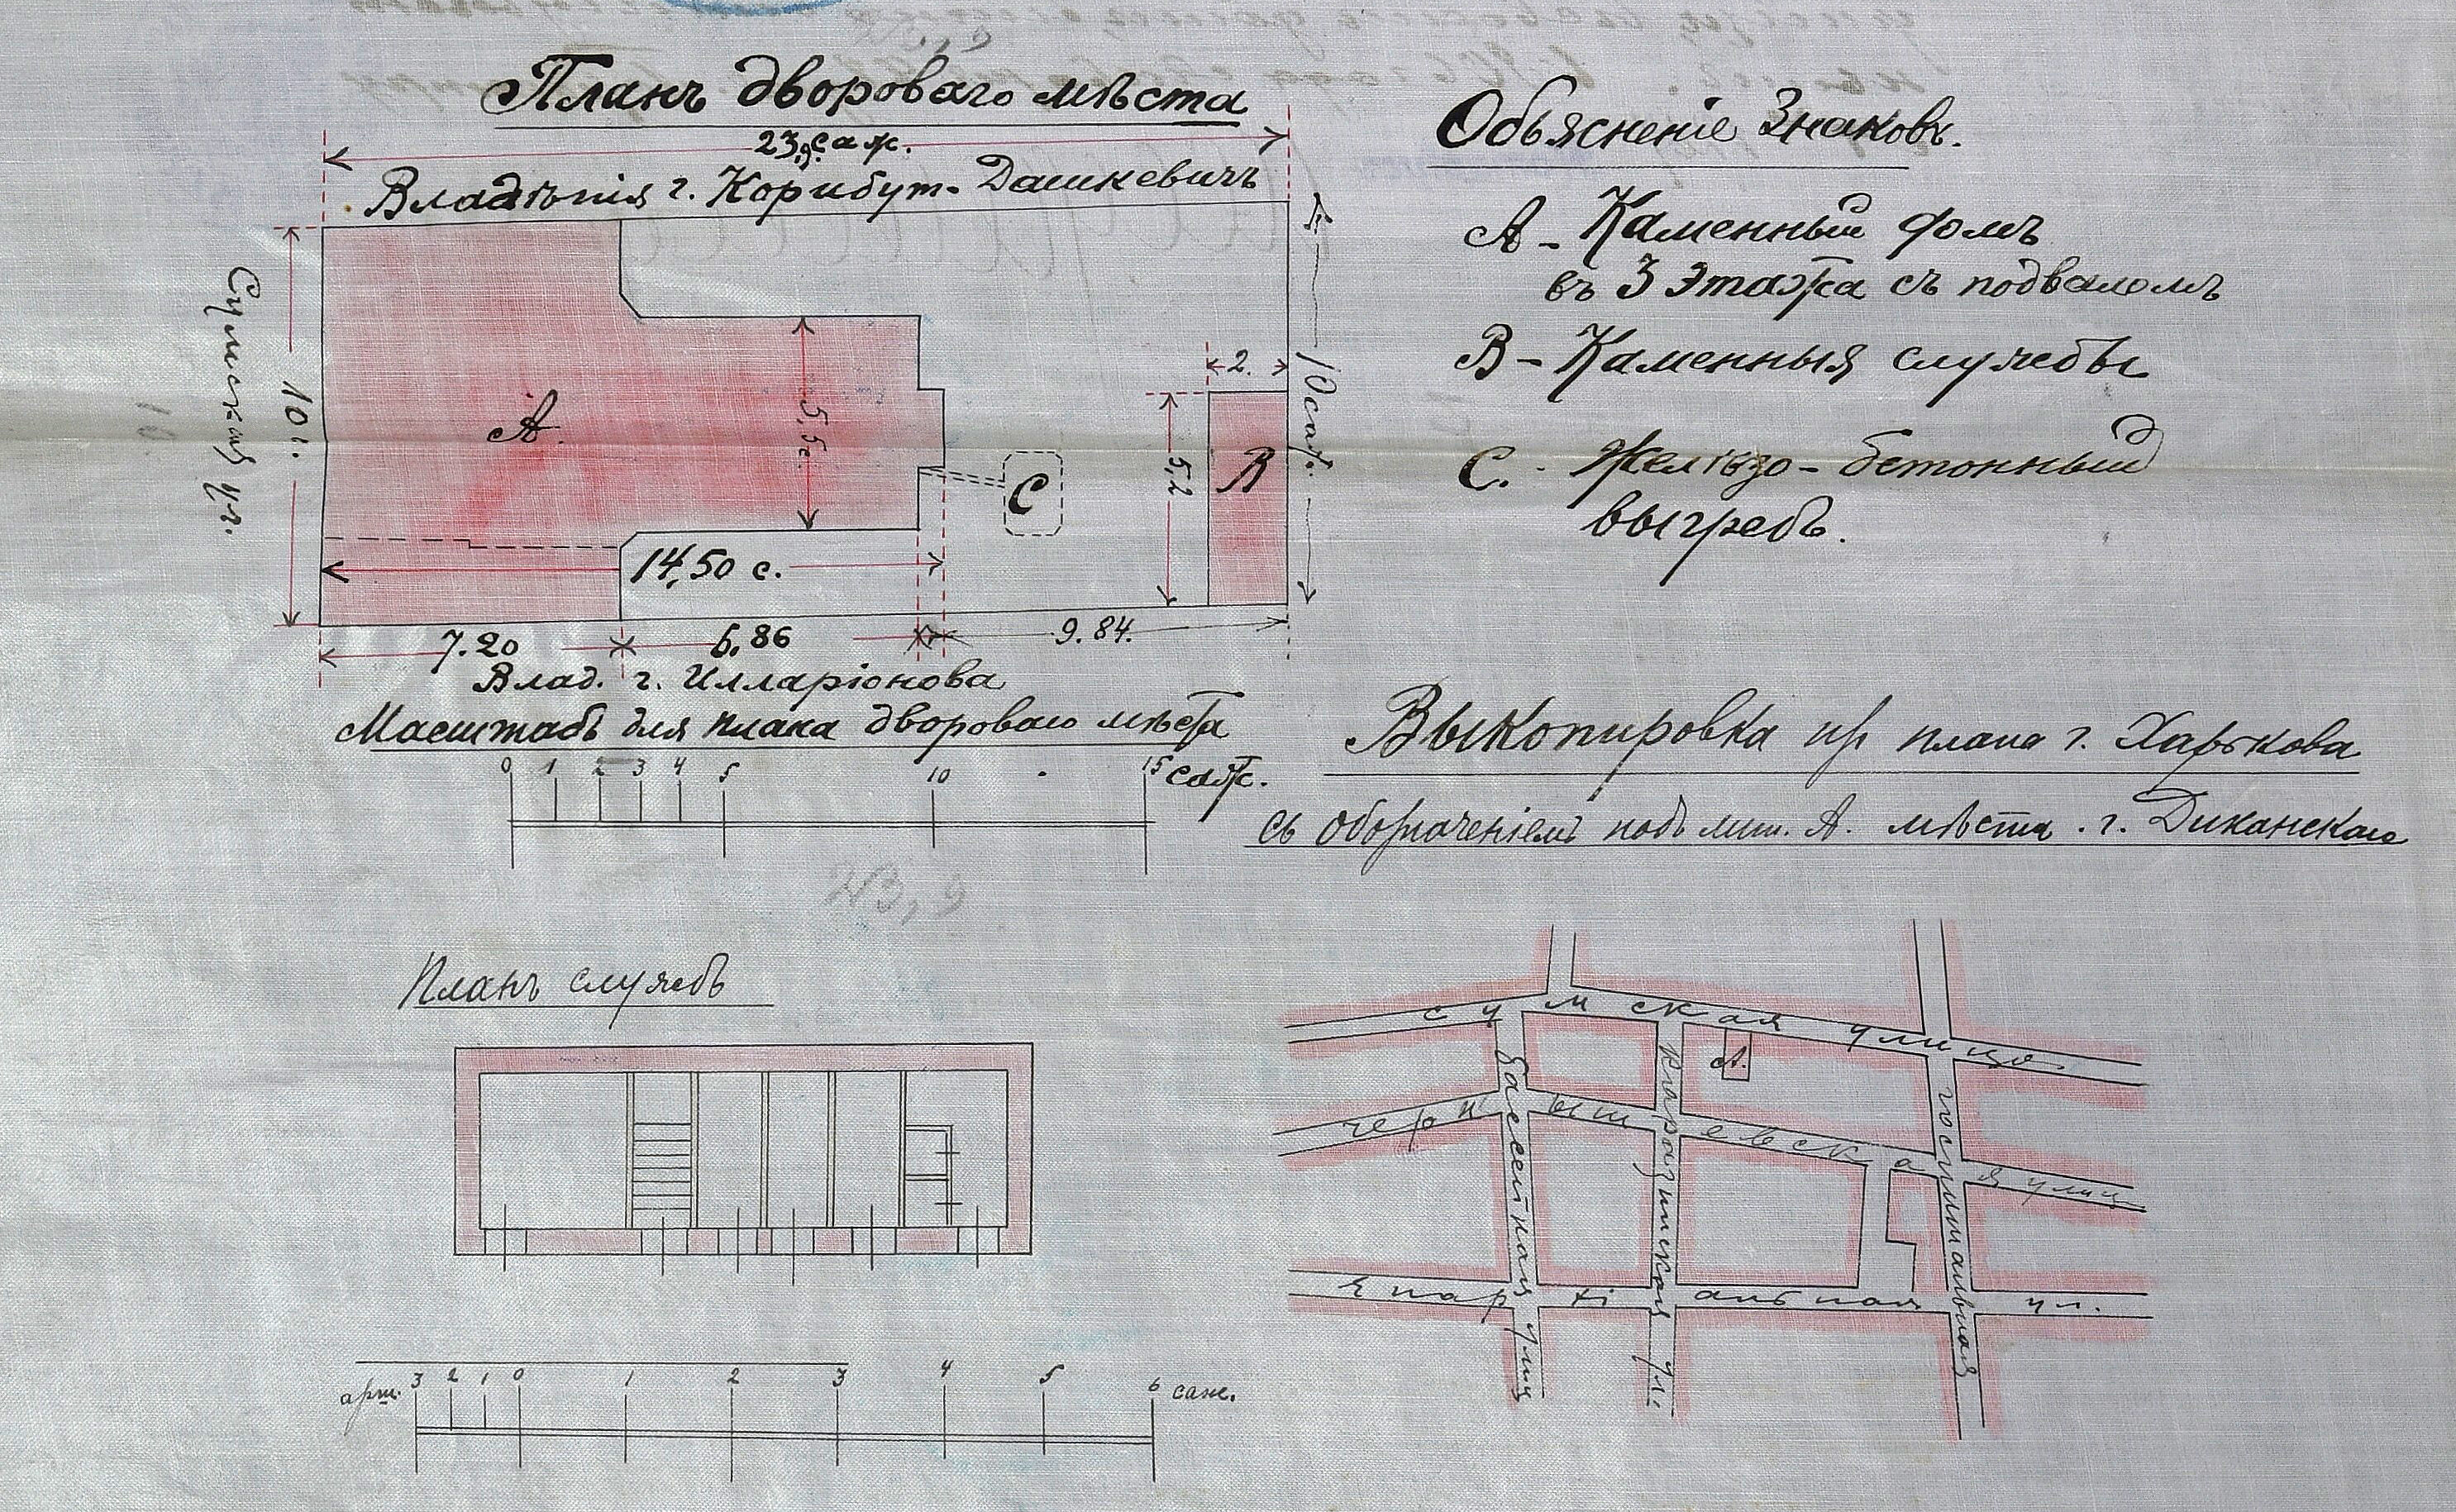 Планъ двороваго мѣста
23,9 саж.
Владѣнія г. Корибут-Дашкевичъ
Сумская ул.
10 с.
А.
5,5 с.
14,50 с.
С
2.
5,2
В
10 саж.
7.20
6,86
9.84.
Влад. г. Илларіонова
Масштабъ для плана двороваго мѣста
0 1 2 3 4 5 10 15 саж.
Объясненіе Знаковъ.
А - Каменный домъ
въ 3 этажа съ подваломъ
В - Каменныя службы
С. - Желѣзо-бетонный
выгребъ.
Выкопировка изъ плана г. Харькова
съ обозначеніемъ подъ лит. А. мѣста г. Диканскаго
Планъ службъ
арш. 3 2 1 0 1 2 3 4 5 6 саж.
Сумская улица
А.
Чернышевская улиц
Епархіальная ул.
Бассейная улиц
Каразинская ул.
Госпитальная